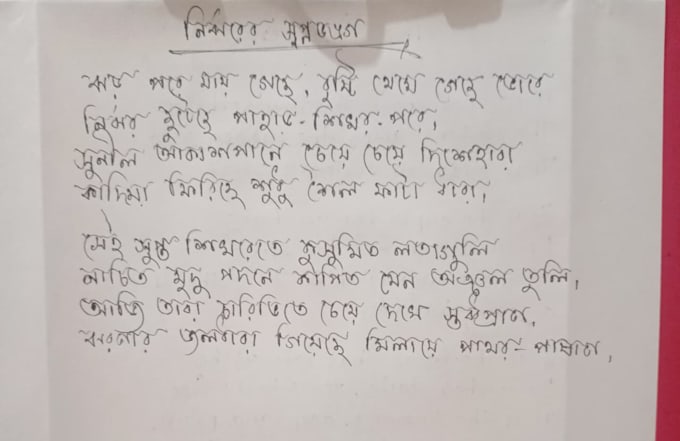 নির্ঝরের সুপ্তভঙ্গ
ঝড় পরে যায় গেছে, বৃষ্টি থেমে গেছে ভোরে
নির্ঝর ছুটেছে পাহাড়-শিখর-পরে,
সুনীল আকাশপানে চেয়ে চেয়ে দিশেহারা
কাঁদিয়া ফিরিছে শুধু শৈল ফাটা ধারা,
সেই সুপ্ত শিখরেতে কুসুমিত লতাগুলি
নাচিত মৃদু পবনে কাঁপিত যেন তুলি,
আজি তারা চারিভিতে চেয়ে দেখে স্তব্ধপ্রাণ,
ঝরনার জলধারা গিয়েছে মিলায়ে পাথর-পাষাণ,